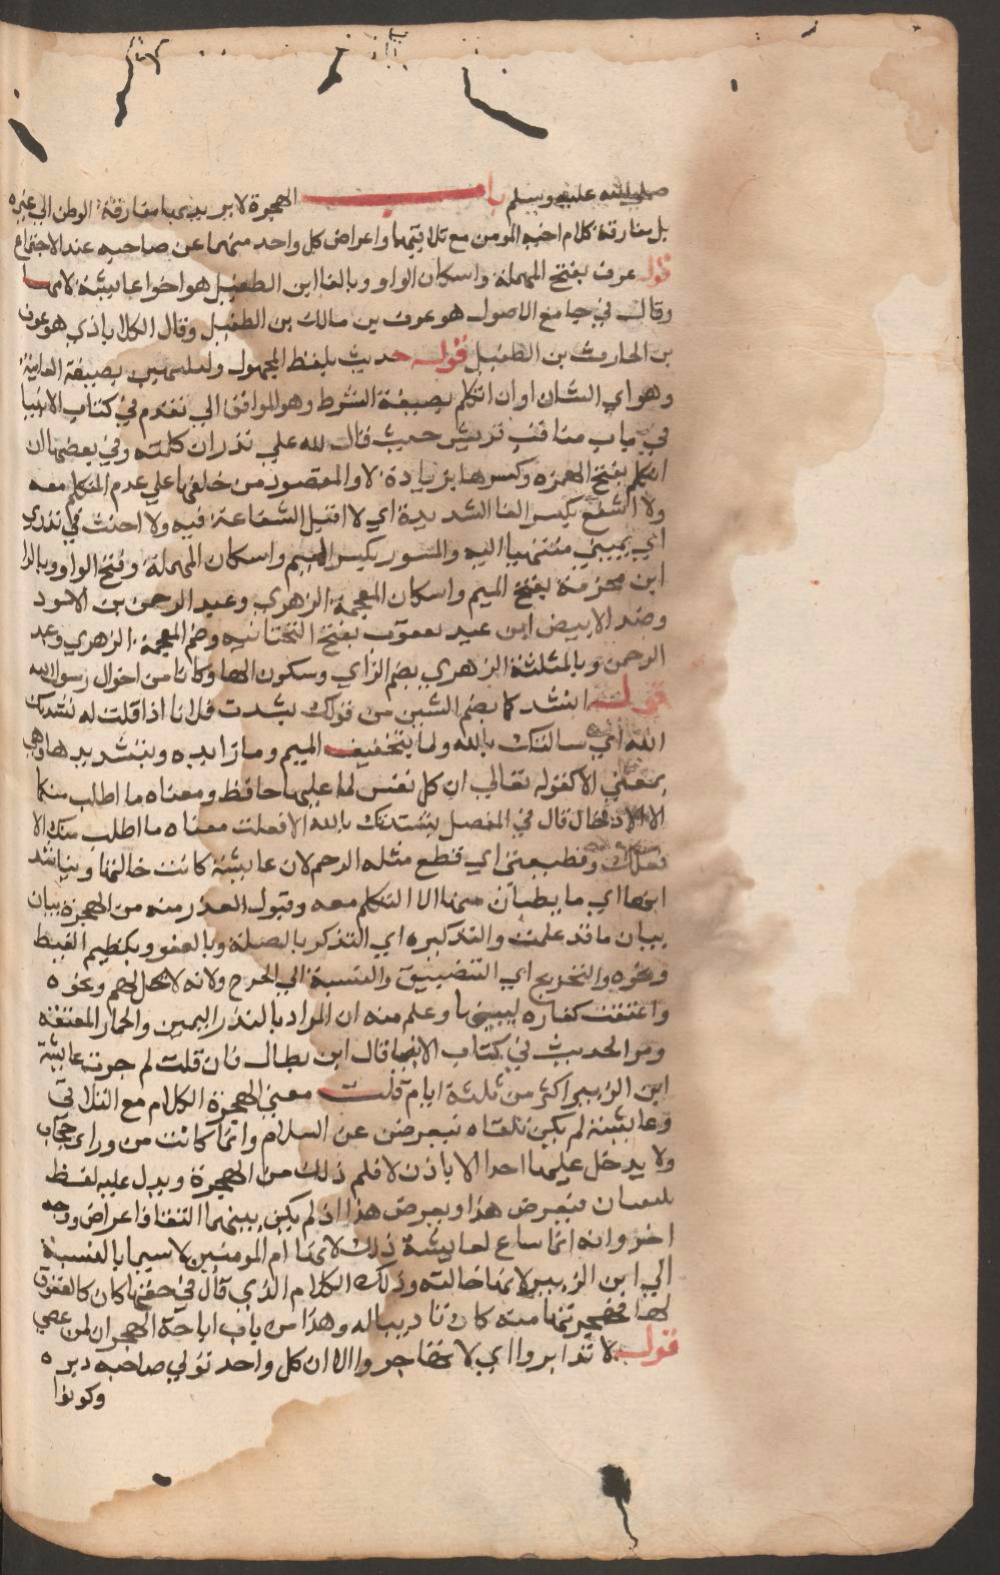 صلى الله عليه وسلم باب الهجرة لا يريد بها مفارقة الوطن الى غيره
بل مفارقة كلام اخيه المومن مع تلاقيهما واعراض كل واحد منهما عن صاحبه عند الاجتماع
قوله عوف بفتح المهملة واسكان الواو وبالفا ابن الطفيل هو اخوا عايشة لامها
وقال في جامع الاصول هو عوف بن مالك بن الطفيل وقال الكلاباذي هو عوف
بن الحارث بن الطفيل قوله حديث بلفظ المجهول بصيغة الغايبة
وهو اي الشان او ان اتكلم بصيغة الشرط وهو الموافق الى تقدم في كتاب الانبيا
في باب مناقب قريش حيث قال لله علي نذر ان كلمته وفي بعضها ان
اتكلم بفتح الهمزه وكسرها بزيادة لا والمقصود من حلفها علي عدم التكلم معه
ولا اشفع بكسر الفا الشديدة اي لا اقبل الشفاعة فيه ولا احنث في نذري
اي يميني منتهيا اليه والمسور بكسر الميم واسكان المهملة وفتح الواو وبالرا
ابن مخرمة بفتح الميم واسكان المعجمة الزهري وعبد الرحمن بن الاسود
وضد الابيض ابن عبد يغوث بفتح التحتانيه وضم المعجمة الزهري وعبد
الرحمن وبالمثلثة الزهري بضم الزاي وسكون الها وكانا من اخوال رسول الله
قوله انشد كما بضم الشين من قولك نشدت فلانا اذا قلت له نشدتك
الله اي سالتك بالله ولما بتخفيف الميم وما زايده وبتشديدها وهي
بمعنى الا كقوله تعالى ان كل نفس لما عليها حافظ ومعناه ما اطلب منكما
الا الادخال قال في المفصل نشدتك بالله الا فعلت معناه ما اطلب منك الا
فعلك وقطيعتي اي قطع صلة الرحم لان عايشة كانت خالتها ويناشد
انها اي ما يطلبان منها الا التكلم معه وقبول العذر منه من الهجرة بيان
بيان ما قد علمت والتذكره اي التذكر بالصلة وبالعفو وبكظم الغيظ
ونحوه والتحريج اي التضييق والنسبة الي الحرج ولانه لا يحل الهجر ونحوه
واعتقت كفاره ليمينها وعلم منه ان المراد بالنذر اليمين
ومر الحديث في كتاب الانبيا قال ابن بطال فان قلت لم هجرت عايشة
ابن الزبير اكثر من ثلثة ايام قلت معنى الهجرة الكلام مع التلاقي
وعايشة لم تكن تلقاه فيعرض عن السلام وانما كانت من وراي حجاب
ولا يدخل عليها احد الا باذن فلم ذلك من الهجرة ويدل عليه لفظ
يلتقيان فيعرض هذا ويعرض هذا اذ لم يكن بينهما التقا فاعراض ووجه
اخر وانه انما ساغ لعايشة ذلك لانها ام المومنين لا سيما بالنسبة
الي ابن الزبير لانها خالته وذلك الكلام الذي قال في حقها كان كالعقوق
لها فهجرتها منه كان تاديبا له وهذا من باب اباحة الهجران لمن عصي
قوله لا تدابروا اي لا تهاجروا ان كل واحد تولي صاحبه دبره
وكونوا